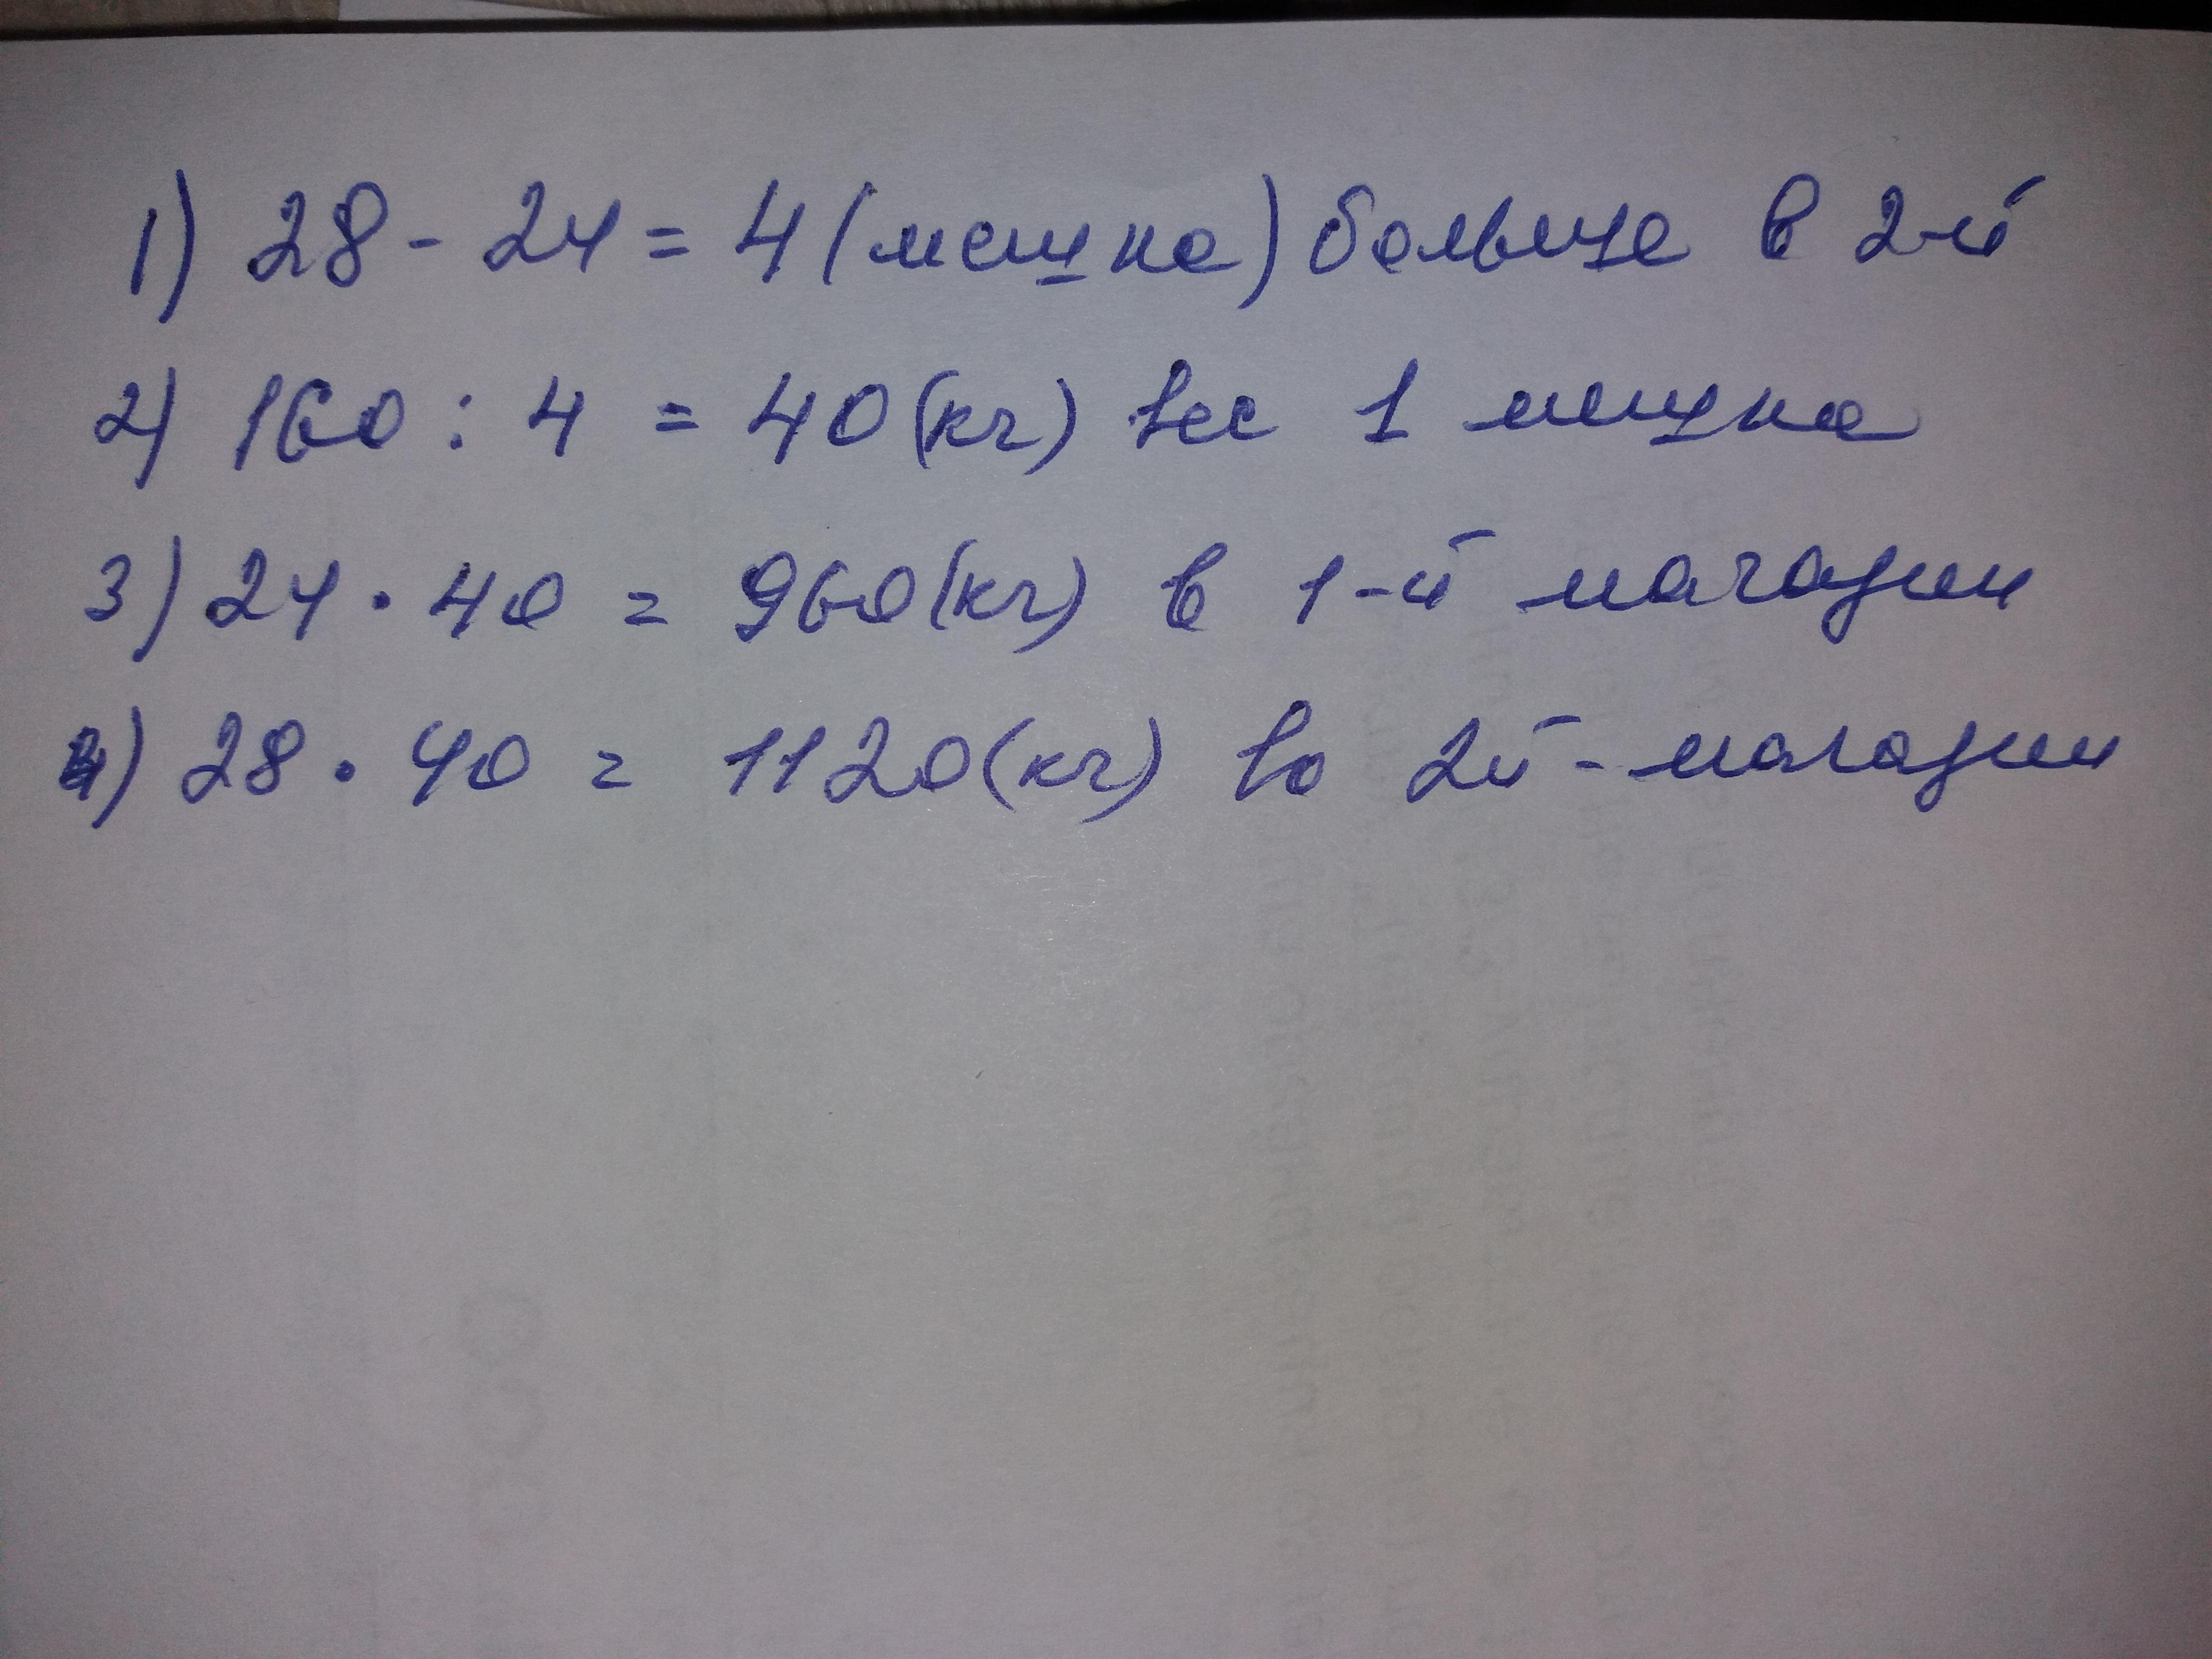 1) 28 - 24 = 4 (мешка) больше в 2-й
2) 160 : 4 = 40 (кг) вес 1 мешка
3) 24 · 40 = 960 (кг) в 1-й магазин
4) 28 · 40 = 1120 (кг) во 2й - магазин